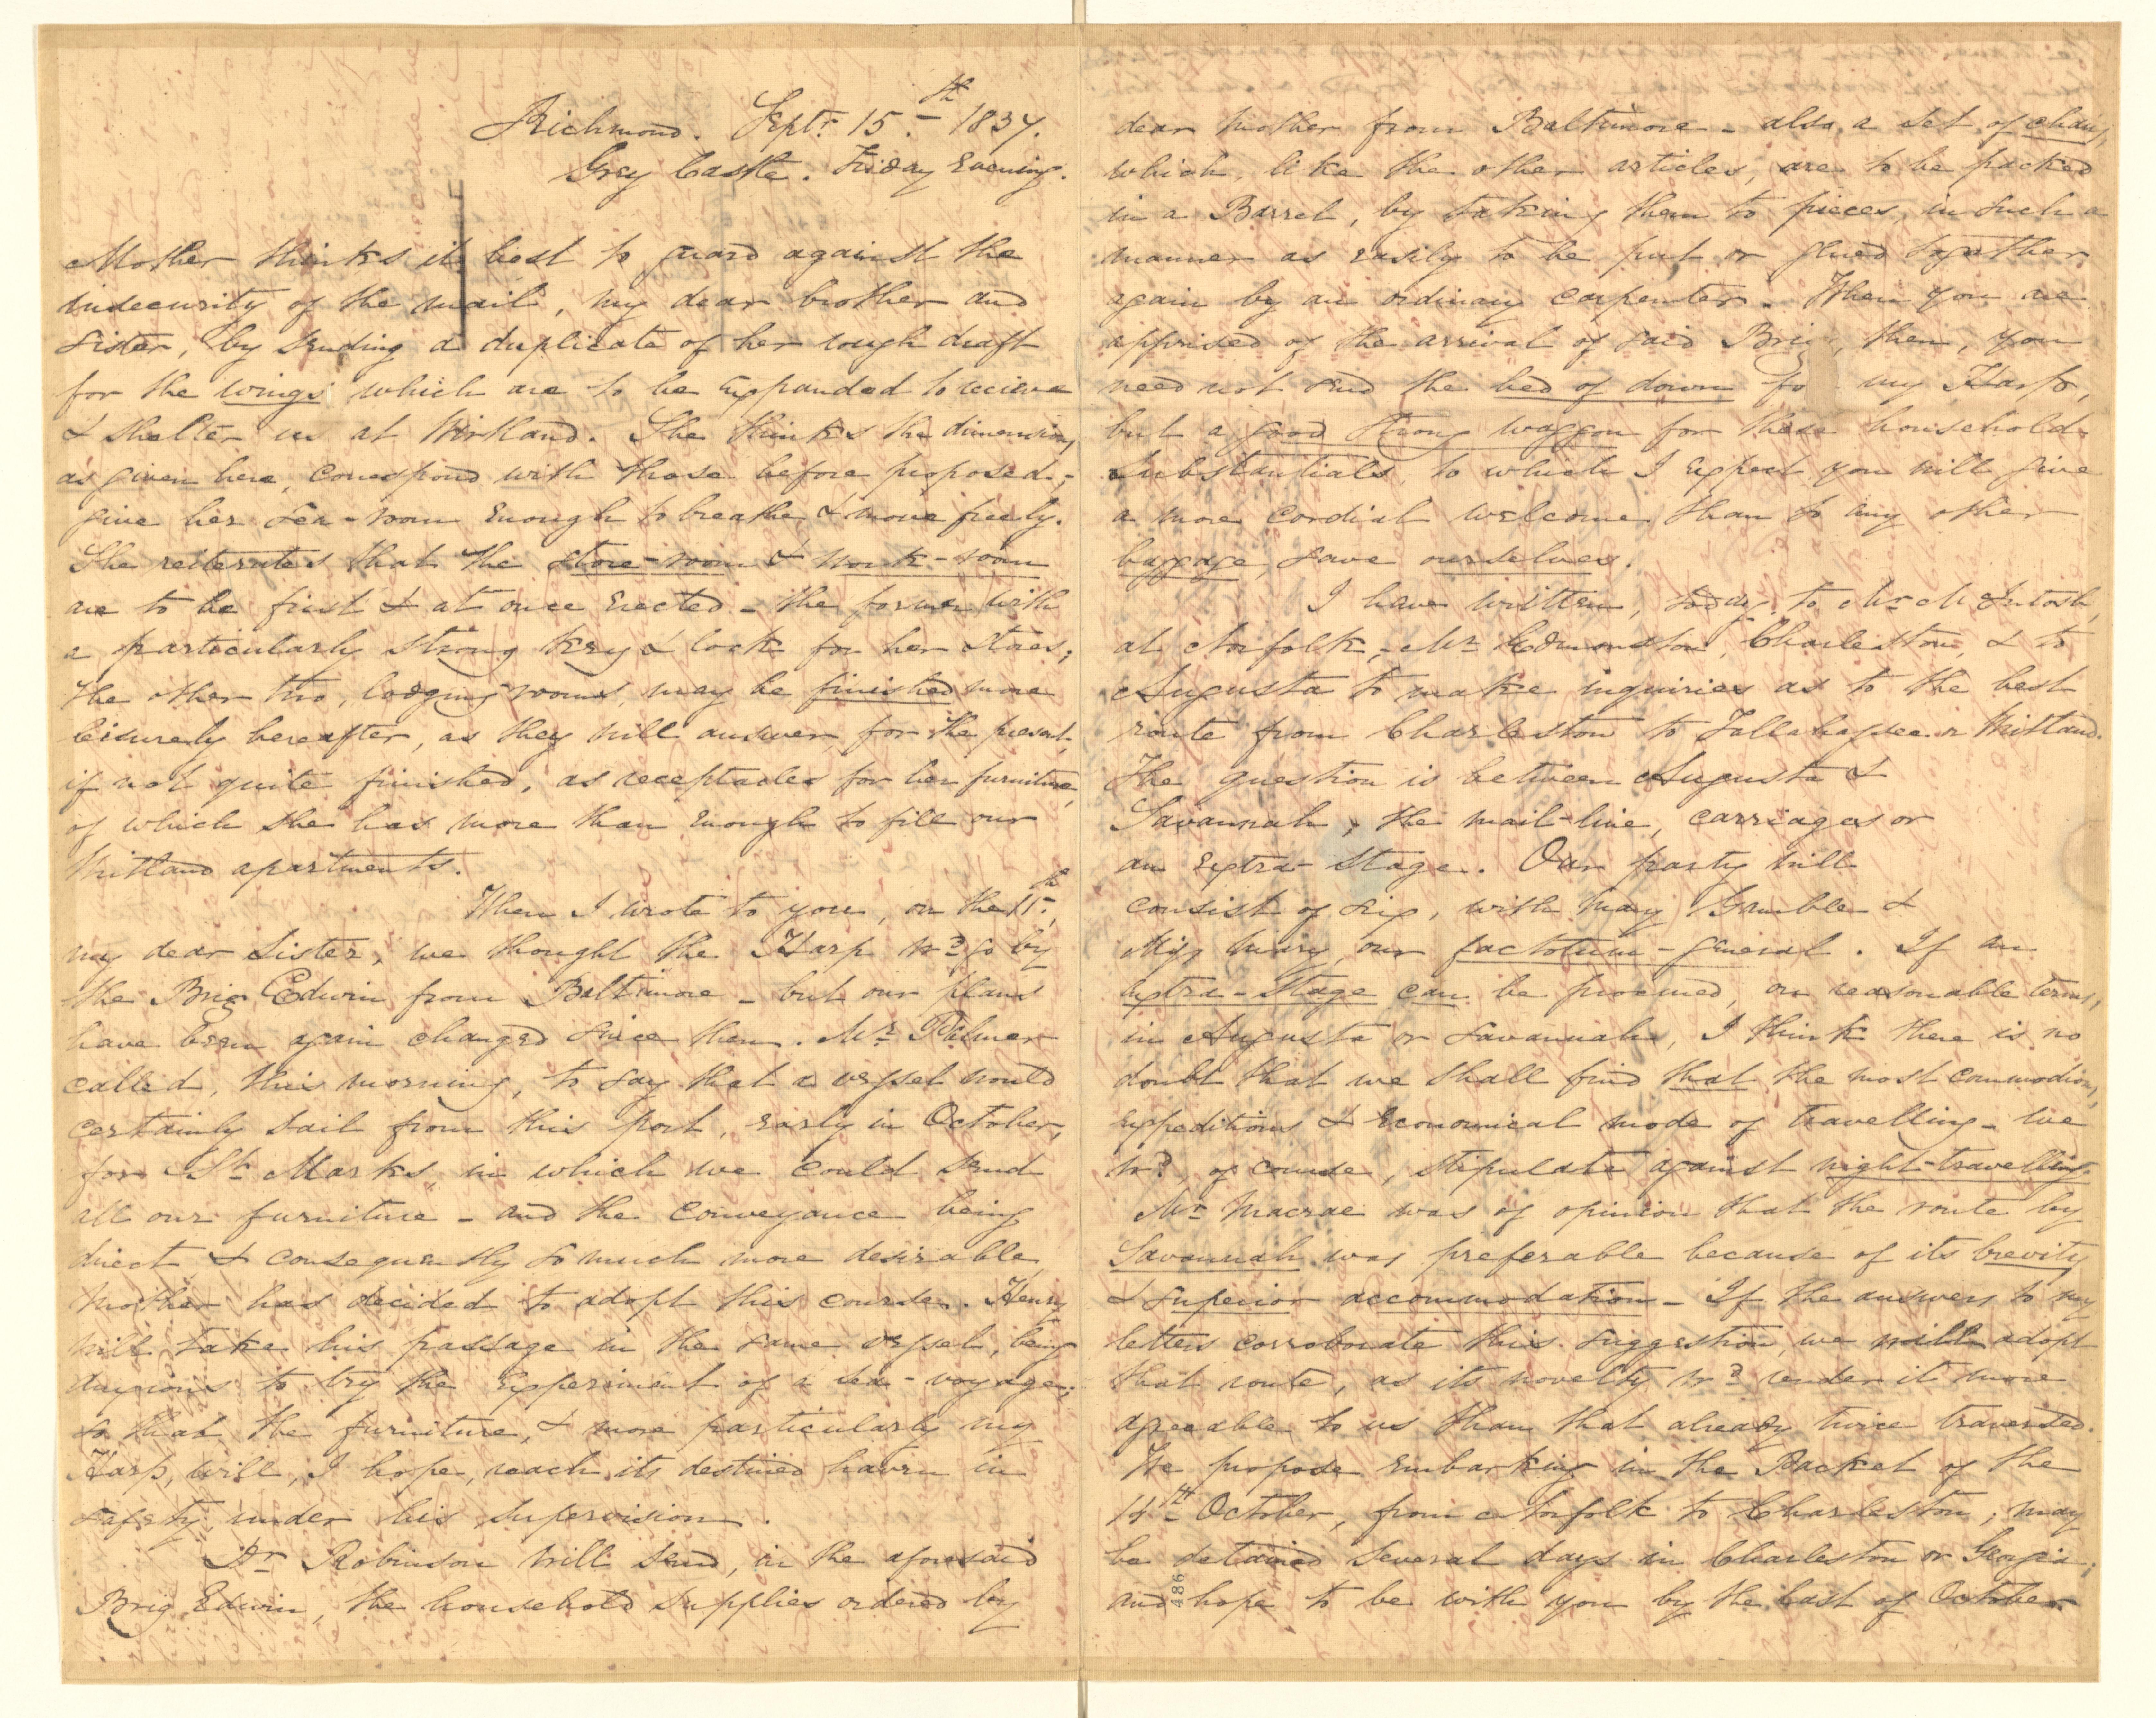 Richmond. Septr. 15th 1837.
Grey Castle. Friday Evening.
Mother thinks it best to guard against the
insecurity of the mail, my dear brother and
sister, by sending a duplicate of her rough draft
for the wings which are to be expanded to recieve
& shelter us at Wirtland. She thinks the dimensions,
as given here, correspond with those before proposed;
give her sea-room enough to breathe & move freely.
She reiterates that the store-room & work-room
are to be first & at once erected - the former with
a particularly strong key & lock for her stores;
the other two, lodging rooms, may be finished more
leisurely hereafter, as they will answer, for the present,
if not quite finished, as receptacles for her furniture,
of which she has more than enough to fill our
Wirtland apartments.
When I wrote to you, on the 11th,
my dear Sister, we thought the Harp wd go by
the Brig Edwin from Baltimore - but our plans
have been again changed since then. Mr. Palmer
called, this morning, to say that a vessel would
certainly sail from this port, early in October,
for St. Marks, in which we could send
all our furniture - and the conveyance being
direct & consequently so much more desirable,
Mother has decided to adopt this course. Henry
will take his passage in the same vessel, being
anxious to try the experiment of a sea-voyage;
so that the furniture, & more particularly my
Harp, will, I hope, reach its destined haven in
safety, under his supervision.
Dr. Robinson will send, in the aforesaid
Brig Edwin, the household supplies ordered by
dear Mother from Baltimore - also, a set of chairs,
which, like the other articles, are to be packed
in a Barrel, by taking them to pieces, in such a
manner as easily to be put or glued together
again by an ordinary carpenter. When you are
apprised of the arrival of said Brig, then, you
need not send the bed of down for my Harp,
but a good strong waggon for these household
substantials, to which I expect you will give
a more cordial welcome than to any other
baggage, save ourselves.
I have written, today, to Mr. McIntosh,
at Norfolk, - Mr. Edmonston, Charleston, & to
Augusta to make inquiries as to the best
route from Charleston to Tallahassee or Wirtland.
The question is between Augusta &
Savannah, the mail-line, carriages or
an extra-stage. Our party will
consist of six, with May Gamble &
Miss Mary, our factotum-general. If an
extra-stage can be procured, on reasonable terms,
in Augusta or Savannah, I think there is no
doubt that we shall find that the most commodious,
expeditious & economical mode of travelling - we
wd, of course, stipulate against night-travelling.
Mr. Macrae was of opinion that the route by
Savannah was preferable because of its brevity
& superior accommodation - If the answers to my
letters corroborate this suggestion, we will adopt
that route, as its novelty wd render it more
agreeable to us than that already twice traversed.
We propose embarking in the Packet of the
14th October, from Norfolk to Charleston, may
be detained several days in Charleston or Georgia;
and hope to be with you by the last of October
486